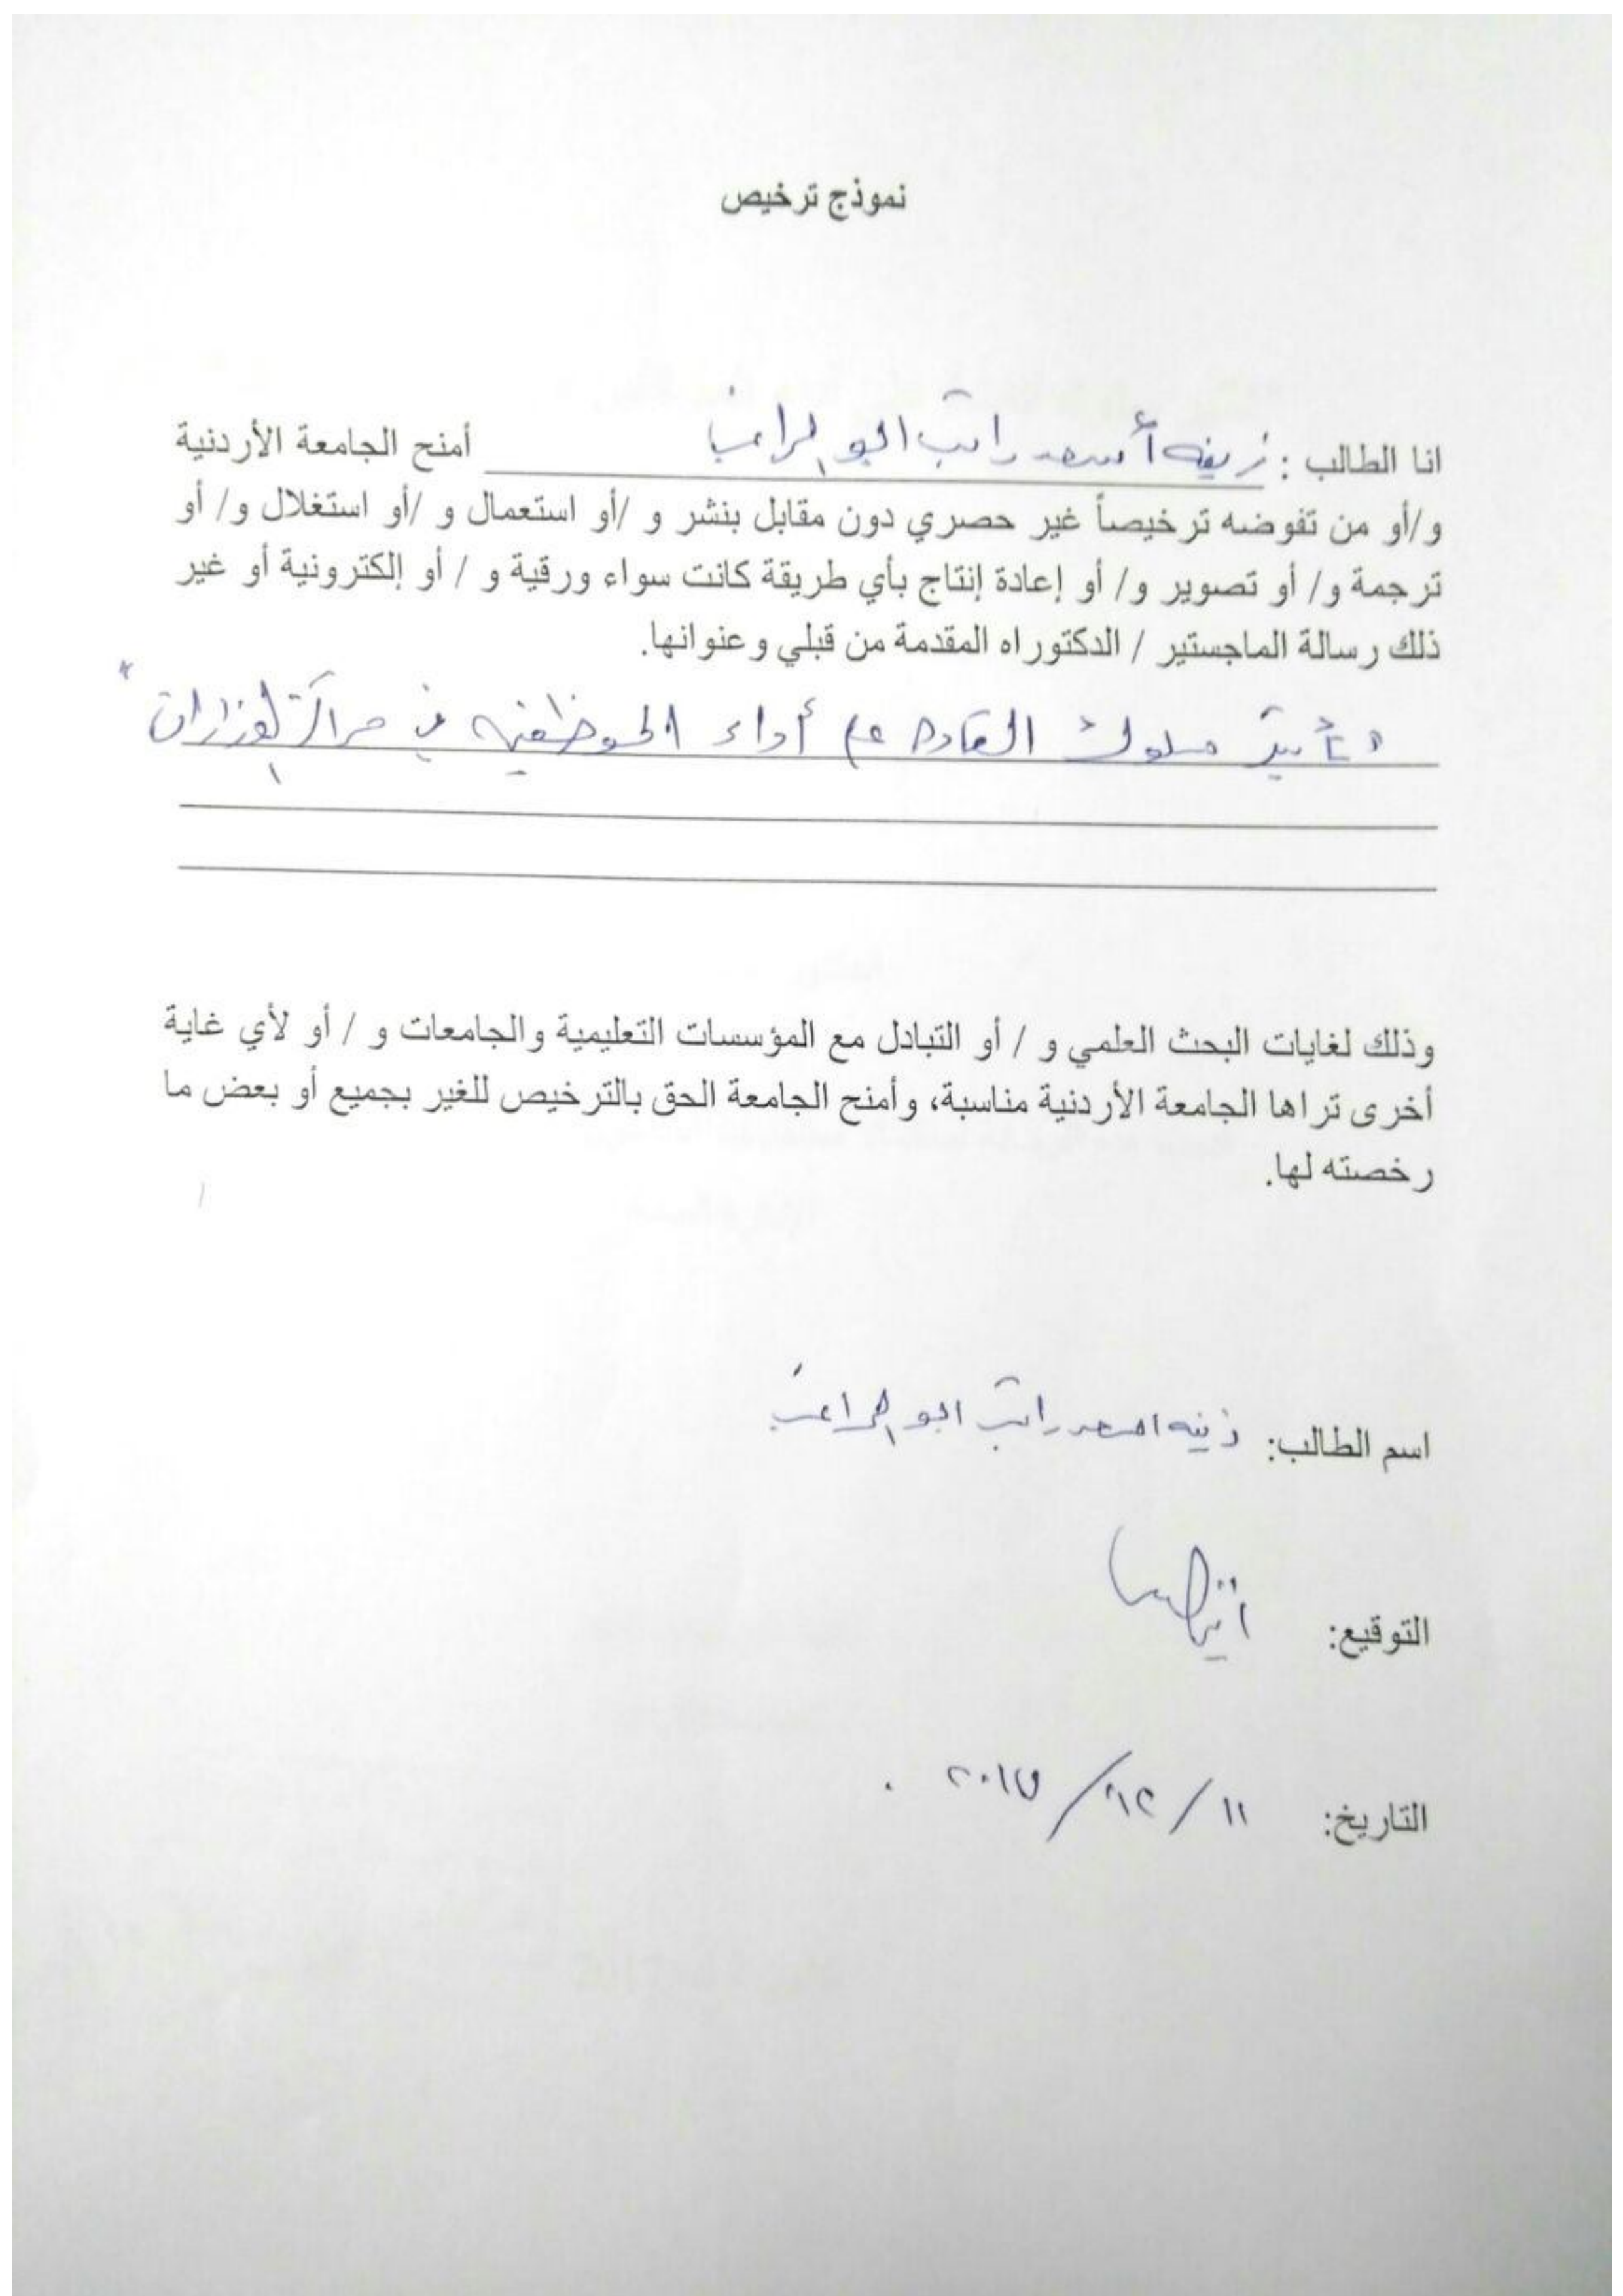 نموذج ترخيص
انا الطالب : زينه أسعد راتب ابو الراغب أمنح الجامعة الأردنية
و/أو من تفوضه ترخيصاً غير حصري دون مقابل بنشر و /أو استعمال و /أو استغلال و/ أو
ترجمة و/ أو تصوير و/ أو إعادة إنتاج بأي طريقة كانت سواء ورقية و / أو إلكترونية أو غير
ذلك رسالة الماجستير / الدكتوراه المقدمة من قبلي وعنوانها.
"تأثير سلوك القادة على أداء الموظفين في مراكز الوزارات"
وذلك لغايات البحث العلمي و / أو التبادل مع المؤسسات التعليمية والجامعات و / أو لأي غاية
أخرى تراها الجامعة الأردنية مناسبة، وأمنح الجامعة الحق بالترخيص للغير بجميع أو بعض ما
رخصته لها.
اسم الطالب: زينه اسعد راتب ابو الراغب
التوقيع:
التاريخ: ١١ / ١٢ / ٢٠١٧ .